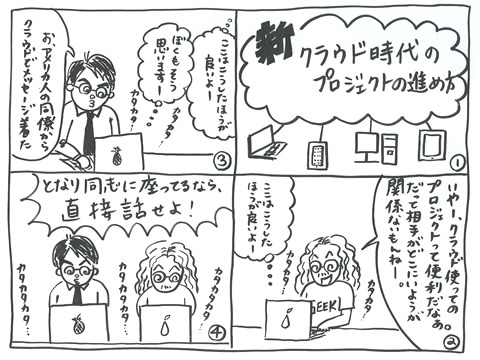 新
クラウド時代の
プロジェクトの進め方
①
いやー、クラウド使っての
プロジェクトって便利だなぁ。
だって相手がどこにいようが
関係ないもんねー。
ここはこうした
ほうが良いよー
カタカタ…
カタカタ…
GEEK
②
ここはこうしたほうが
良いよー
ぼくもそう
思います!
カタカタ
カタカタ…
お、アメリカ人の同僚から
クラウドでメッセージ着た
③
となり同士に座ってるなら、
直接話せよ!
カタカタ
カタカタ…
カタカタ
カタカタ…
カタカタカタ…
カタカタカタ…
④